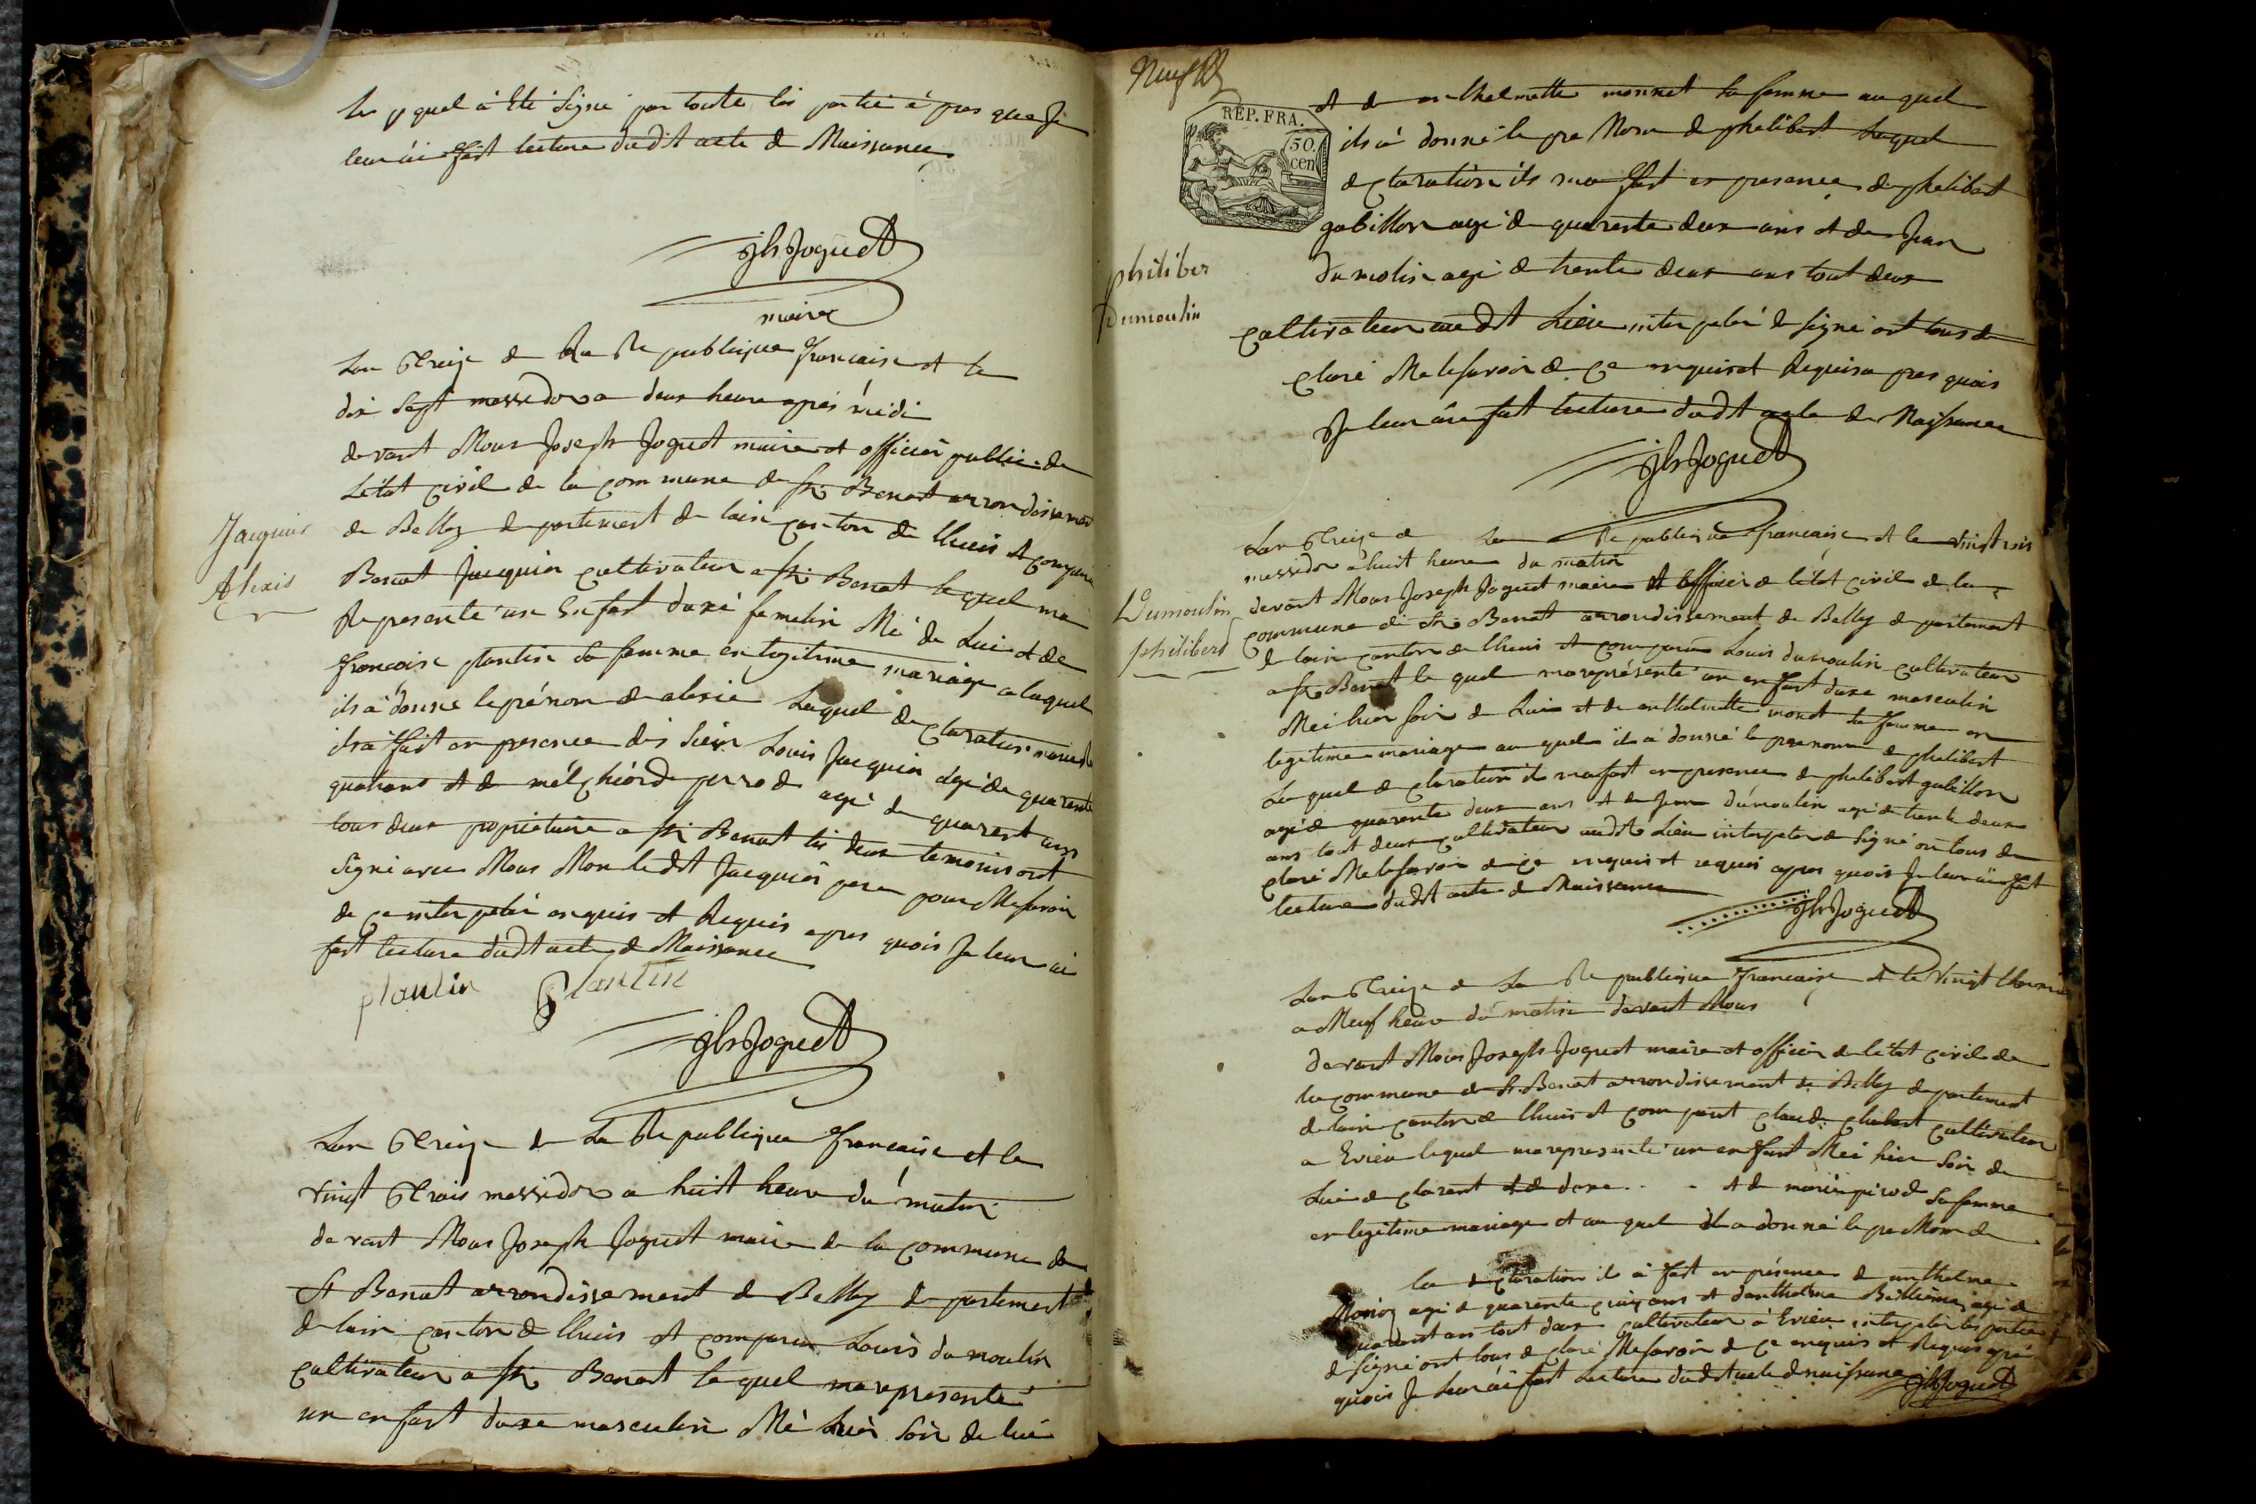 quel à Eté Signé par toute les partie à pres que Je
leur ai fast lecture dudit acte de Naissance
jh Joguet
maire
Lan Treize de La Republique francaise et le
dix Sept messidor a deux heure apres midi
devant Nous Joseph Joguet maire et officier public de
Létat civil de la commune de St Benoit arrondissement
de Belley departement de lain canton de lhuis et comparu
Jacquin
Alexis
Benoit Jacquin cultivateur a St Benoit lequel ma
Représenté un Enfast duxé femelin Né de Lui et de
francoise plantin Sa femme en legitime mariage a laquel
ils à donné le prénom de alexie Laquel declaration
ils à fast en presence des Sieur Louis Jacquin agé de quarente
quatrans et de melchiord perrod agé de quarent ans
tous deux propriétaire a St Benoit les deux temoins ont
Signé avec Nous Non ledit Jacquin pere pour Ne Savoir
de ce interpelé enquis et Requis apres quois Je leur ai
fast lecture dudit acte de Naissance
plantin Plantin
jh Joguet
Lan Treize de La Republique francaise et le
vingt Trois messidor a huit heure du matin
devant Nous Joseph Joguet maire de la commune de
St Benoit arrondissement de Belley departement
de lain canton de lhuis et comparu Louis dumoulin
cultivateur a St Benoit lequel ma representé
un enfast duxe masculin Né hier Soir de lui
Neuf
REP. FRA.
50.
cen
et de anthelmette monnet Sa femme au quel
ils à donné le pre Nom de phelibert Laquel
declaration ils ma fast en presence de phelibert
gabillon agé de quarente deux ans et de Jean
philiber
Dumoulin
dumolin agé de trente deux ans tout deux
cultivateur audit Lieu interpelé de Signé ont tous de
claré Ne le Savoir de ce enquis et Requis a pres quois
Je leur ai fast lecture dudit acte de Naissance
jh Joguet
Lan Treize de La Republique francaise et le vingt trois
messidor à huit heure du matin
Dumoulin
philibert
devant Nous Joseph Joguet maire et officier de létat civil de la
commune de St Benoit arrondissement de Belley departement
de lain canton de lhuis et comparu Louis dumoulin cultivateur
a St Benoit le quel ma représenté un enfast duxe masculin
Né hier soir de Lui et de anthelmette monet Sa femme en
legitime mariage au quel il à donné le prenom de phelibert
Laquel declaration il ma fast en presence de phelibert gabillon
agé de quarente deux ans et de Jean dumoulin agé de trente deux
ans tout deux cultivateur audit Lieu interpelé de Signé on tous de
claré Ne le Savoir de ce enquis et requis apres quois Je leur ai fast
lecture dudit acte de Naissance
jh Joguet
Lan Treize de La Republique francaise et le Vingt
a Neuf heure du matin devant Nous
devant Nous Joseph Joguet maire et officier de létat civil de
la commune de St Benoit arrondissement de Belley departement
de lain canton de lhuis et comparu claude chabert cultivateur
a Evieu lequel ma representé un enfant Né hier Soir de
Lui declarent et de marie Sa femme
en legitime mariage et au quel il a donné le pre Nom de
la declaration il à fast en présence de anthelme
agé de quarente cinq ans et danthelme agé de
quarent ans tout deux cultivateur à Evieu interpelé les parties
de Signé ont tous declaré Ne Savoir de ce enquis et Requis apré
quois Je leur ai fast Lecture dudit acte de naissance jh Joguet